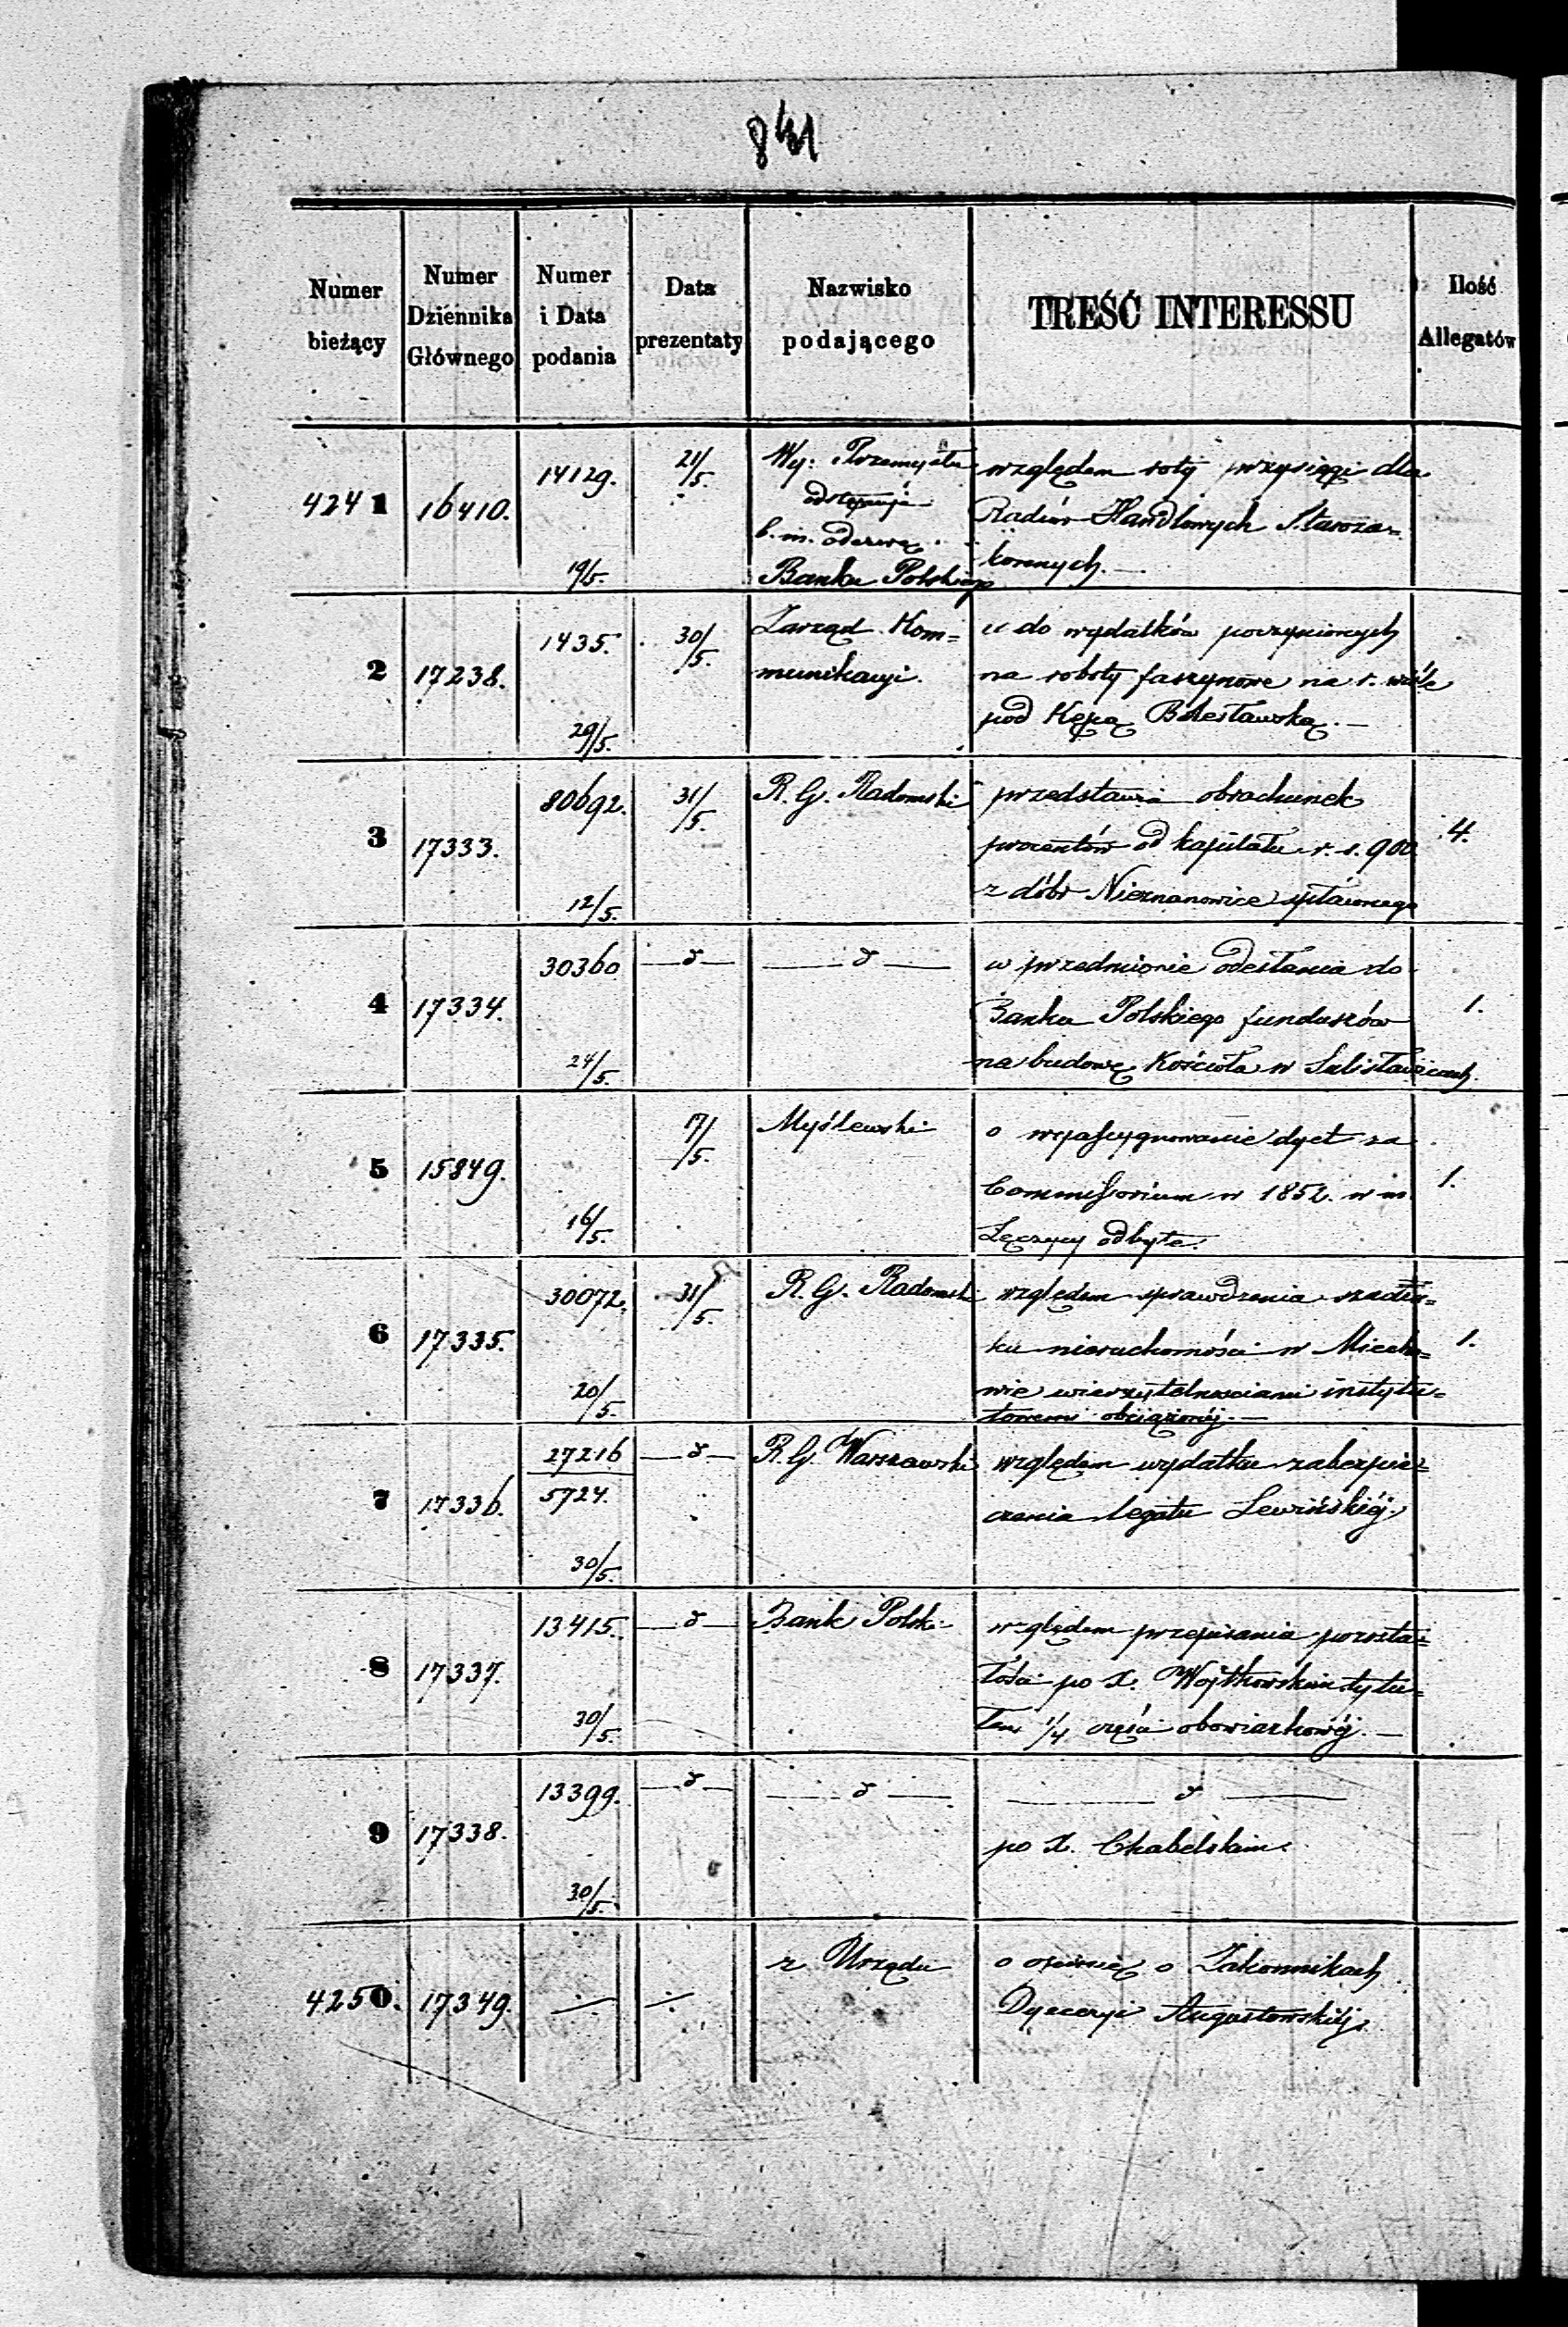 841
Numer bieżący
Numer Dziennika Głównego
Numer i Data podania
Data prezentaty
Nazwisko podającego
TREŚĆ INTERESSU
Ilość Allegatów
4241 16410. 14129. 19/5. 21/5.
Wy: Przemysłu
odstępuje
b. m. odezwę
Banku Polskiego
względem roty przysięgi dla
Radców Handlowych Staroza=
konnych.—
2 17238. 1435. 29/5. 30/5.
Zarząd Kom=
munikacyi.
do wydatków poczynionych
na roboty faszynowe na r. wiśle
pod Kępą Bolesławską.—
3 17333. 80692. 12/5. 31/5.
R. G. Radomski
przedstawia obrachunek
procentów od kapitału r. s. 900.
z dóbr Nieznanowice spłaconego
4.
4 17334. 30360 24/5. —d— —d—
w przedmiocie odesłania do
Banku Polskiego funduszów
na budowę Kościoła w Sulisławicach.
1.
5 15849. 16/5. 17/5.
Myślewski
o wyassygnowanie dyet za
Commissorium w 1852. w m.
Łęczycy odbyte.
1.
6 17335. 30072. 20/5. 31/5.
R. G. Radomski
względem sprawdzenia szacun=
ku nieruchomości w Miecho=
wie wierzytelnosciami instytu=
towemi obciążonéj.—
1.
7 17336. 27216 5724. 30/5. —d—
R. G. Warszawski
względem wydatku zabezpie=
czenia legatu Lewińskiéj.
8 17337. 13415. 30/5. —d—
Bank Polski
względem przepisania pozosta=
łości po X. Wojtkowskim tytu=
łem 1/4 części obowiązkowéj.—
9 17338. 13399. 30/5. —d— —d— —d—
po X. Chabelskim.
4250. 17349. ·/· ·/·
z Urzędu
o opinię o Zakonnikach
Dyecezyi Augustowskiéj.